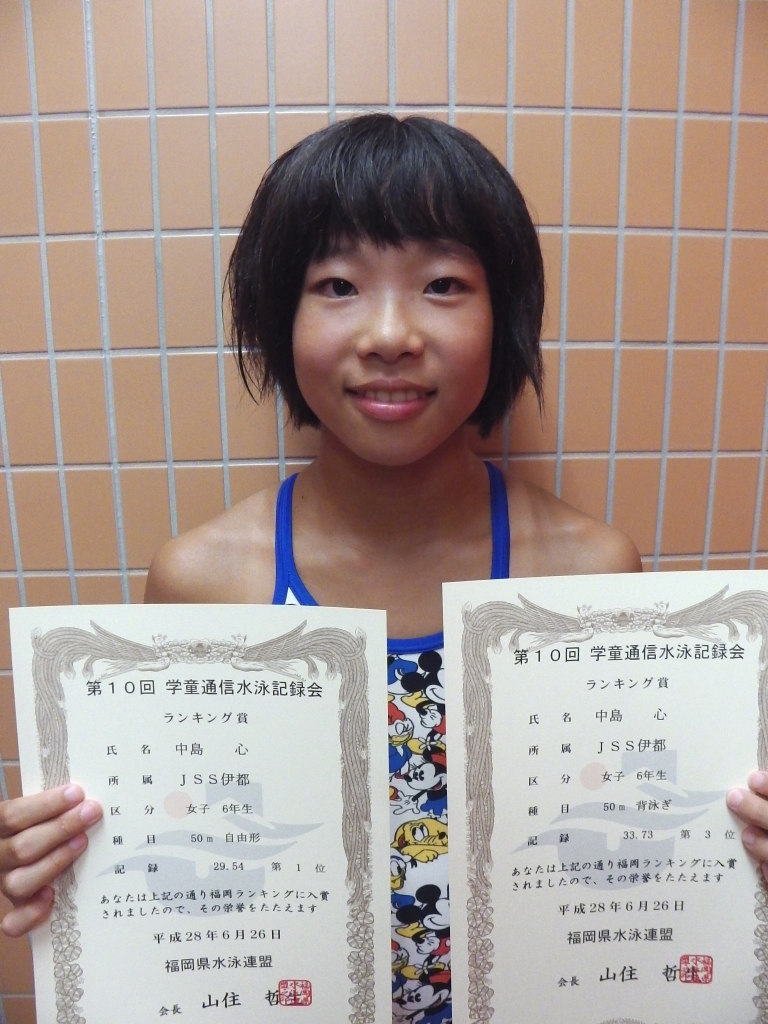 第10回 学童通信水泳記録会
ランキング賞
氏 名 中島 心
所 属 JSS伊都
区 分 女子 6年生
種 目 50m 自由形
記 録 29.54 第 1 位
あなたは上記の通り福岡ランキングに入賞
されましたので、その栄誉をたたえます
平成28年6月26日
福岡県水泳連盟
会長 山住 哲生
第10回 学童通信水泳記録会
ランキング賞
氏 名 中島 心
所 属 JSS伊都
区 分 女子 6年生
種 目 50m 背泳ぎ
記 録 33.73 第 3 位
あなたは上記の通り福岡ランキングに入賞
されましたので、その栄誉をたたえます
平成28年6月26日
福岡県水泳連盟
会長 山住 哲生